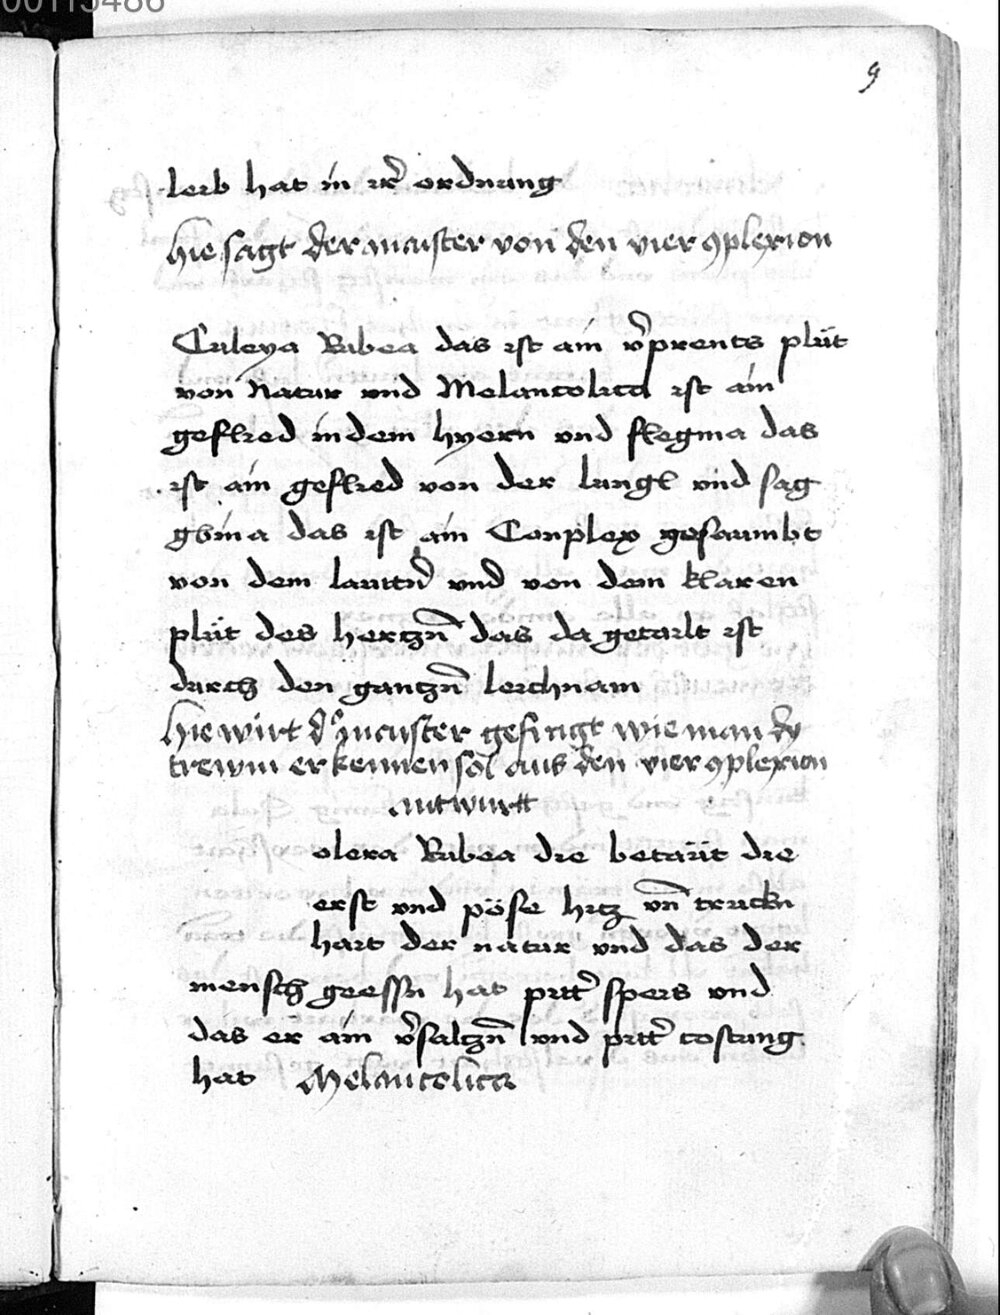 00115486
9
leib hat in irer ordnung
Hie sagt der maister von den vier 9plexion
Culeya Rubea das ist ain v̄prents plüt
von Natur vnd Melancolica ist ain
geflied in dem hyern vnd flegma das
ist ain geflied von der lungl vnd sag
gbina das ist ain Conplex gesaumbt
von dem lautern vnd von dem klaren
plüt des hertzn̄ das da getailt ist
durch den gantzn̄ leichnam
Hie wirt d° maister gefragt wie man dy
trewm erkennen sol aus den vier 9plexion
Antwurtt
olera Rubea die betaüt die
erst vnd pöse hitz vn̄ truckn
hait der natur vnd das der
mensch geessn hat pitter speis vnd
das er ain v̄saltzn̄ vnd pitter costung
hat Melancolica